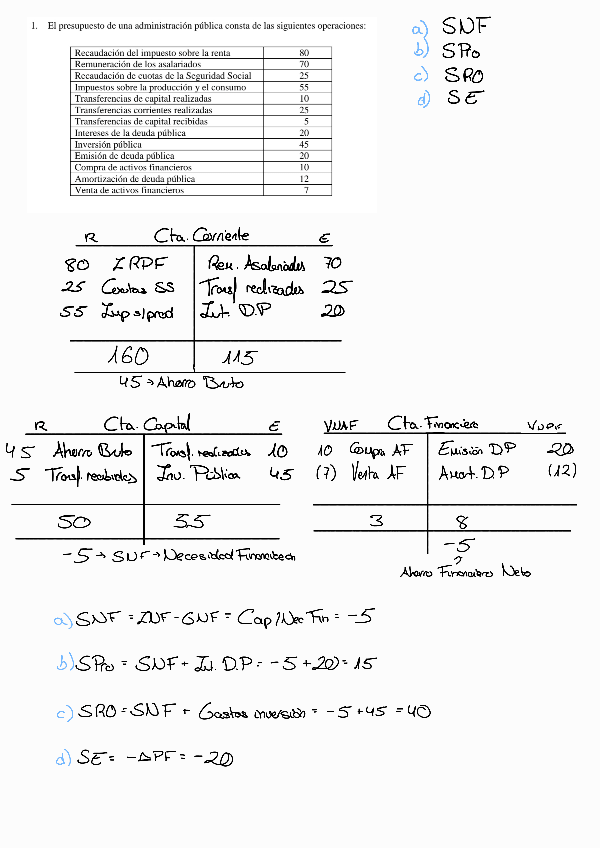 1. El presupuesto de una administración pública consta de las siguientes operaciones:
Recaudación del impuesto sobre la renta 80
Remuneración de los asalariados 70
Recaudación de cuotas de la Seguridad Social 25
Impuestos sobre la producción y el consumo 55
Transferencias de capital realizadas 10
Transferencias corrientes realizadas 25
Transferencias de capital recibidas 5
Intereses de la deuda pública 20
Inversión pública 45
Emisión de deuda pública 20
Compra de activos financieros 10
Amortización de deuda pública 12
Venta de activos financieros 7
a) SNF
b) SPrio
c) SRO
d) SE
R Cta. Corriente E
80 IRPF Rem. Asalariados 70
25 Cuotas SS Transf realizadas 25
55 Imp s/prod Int. D.P 20
160 115
45 → Ahorro Bruto
R Cta. Capital E
45 Ahorro Bruto Transf. realizadas 10
5 Transf. recibidas Inv. Pública 45
50 55
-5 → SNF → Necesidad Financiación
VNAF Cta. Financiera VNPF
10 Compra AF Emisión DP 20
(7) Venta AF Amort. DP (12)
3 8
-5
Ahorro Financiero Neto
a) SNF = INF - GNF = Cap/Nec Fin = -5
b) SPrio = SNF + Int. D.P = -5 + 20 = 15
c) SRO = SNF + Gastos inversión = -5 + 45 = 40
d) SE = -ΔPF = -20